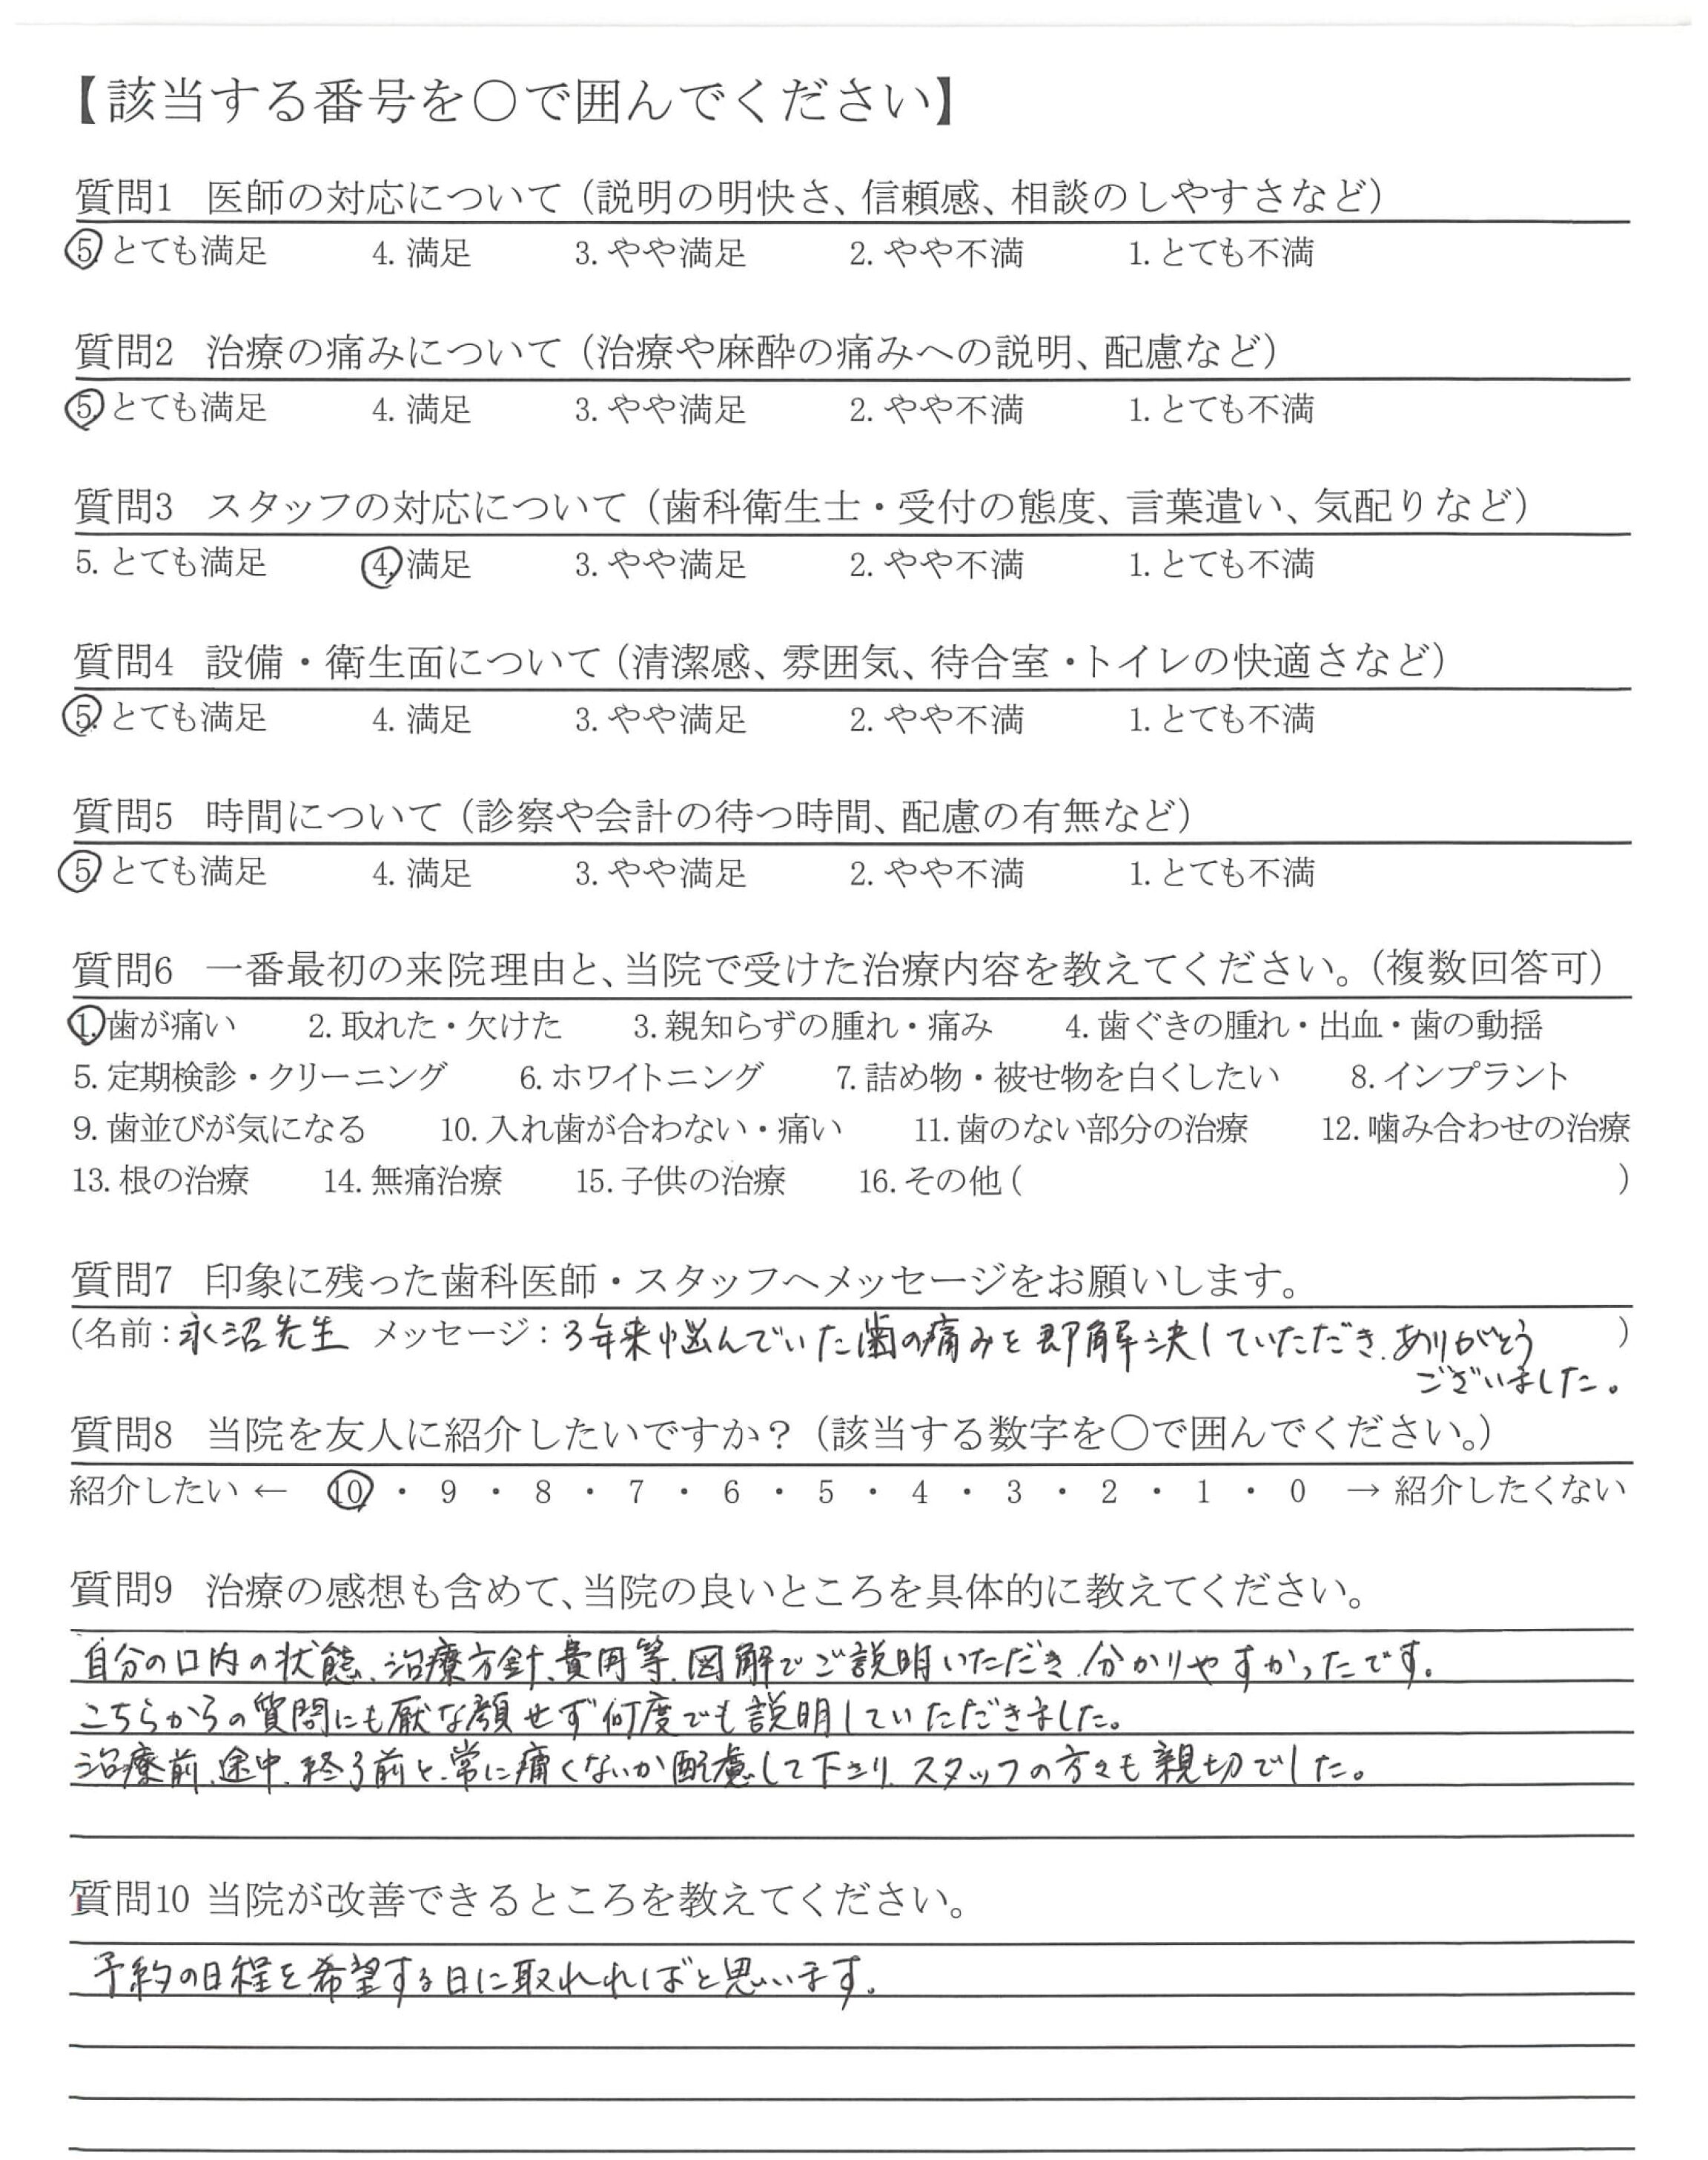 【該当する番号を〇で囲んでください】
質問1 医師の対応について（説明の明快さ、信頼感、相談のしやすさなど）
5. とても満足 4. 満足 3. やや満足 2. やや不満 1. とても不満
質問2 治療の痛みについて（治療や麻酔の痛みへの説明、配慮など）
5. とても満足 4. 満足 3. やや満足 2. やや不満 1. とても不満
質問3 スタッフの対応について（歯科衛生士・受付の態度、言葉遣い、気配りなど）
5. とても満足 4. 満足 3. やや満足 2. やや不満 1. とても不満
質問4 設備・衛生面について（清潔感、雰囲気、待合室・トイレの快適さなど）
5. とても満足 4. 満足 3. やや満足 2. やや不満 1. とても不満
質問5 時間について（診察や会計の待つ時間、配慮の有無など）
5. とても満足 4. 満足 3. やや満足 2. やや不満 1. とても不満
質問6 一番最初の来院理由と、当院で受けた治療内容を教えてください。（複数回答可）
1. 歯が痛い 2. 取れた・欠けた 3. 親知らずの腫れ・痛み 4. 歯ぐきの腫れ・出血・歯の動揺
5. 定期検診・クリーニング 6. ホワイトニング 7. 詰め物・被せ物を白くしたい 8. インプラント
9. 歯並びが気になる 10. 入れ歯が合わない・痛い 11. 歯のない部分の治療 12. 噛み合わせの治療
13. 根の治療 14. 無痛治療 15. 子供の治療 16. その他 ( )
質問7 印象に残った歯科医師・スタッフへメッセージをお願いします。
（名前：永沼先生 メッセージ：3年来悩んでいた歯の痛みを即解決していただき、ありがとう）
ございました。
質問8 当院を友人に紹介したいですか？（該当する数字を〇で囲んでください。）
紹介したい ← 10 ・ 9 ・ 8 ・ 7 ・ 6 ・ 5 ・ 4 ・ 3 ・ 2 ・ 1 ・ 0 → 紹介したくない
質問9 治療の感想も含めて、当院の良いところを具体的に教えてください。
自分の口内の状態、治療方針、費用等、図解でご説明いただき、分かりやすかったです。
こちらからの質問にも厭な顔せず何度でも説明していただきました。
治療前、途中、終了前と、常に痛くないか配慮して下さり、スタッフの方々も親切でした。
質問10 当院が改善できるところを教えてください。
予約の日程を希望する日に取れればと思います。